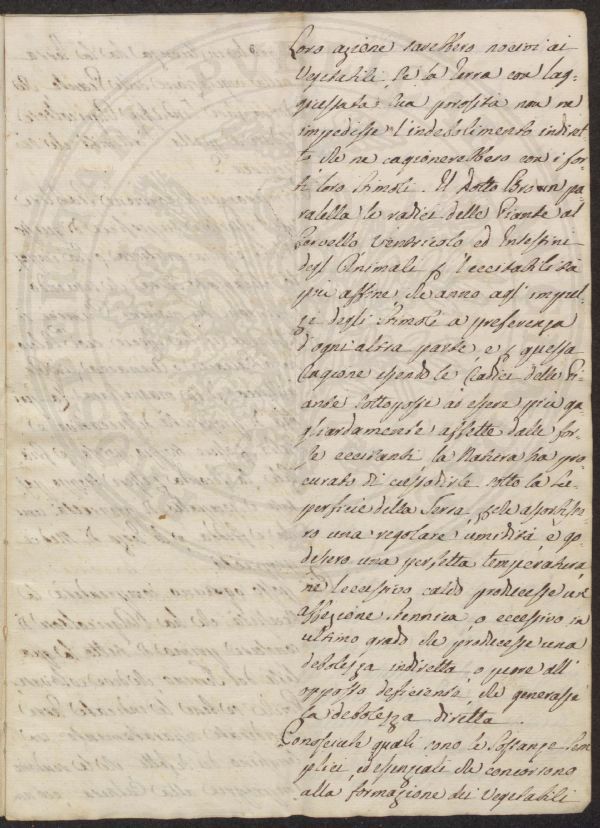 Loro azione sarebbero nocivi ai
Vegetabili se la terra con l'ag-
gressata sua porosità non ne
impedisse l'indebolimento indiret-
to che ne cagionerebbero con i for-
ti loro stimoli. Il dotto Broun pa-
ralella le radici delle Piante al
Cervello Ventricolo ed Intestini
degl'Animali p l'eccitabilità
più affine che anno agl'impul-
si degli Stimoli a preferenza
d'ogni altra parte, e p questa
Cagione essendo le Radici delle Pi-
ante sottoposte ad essere più ga-
gliardamente affette dalle for-
ze eccitanti la Natura ha pro-
curato di custodirle sotto la Su-
perficie della Terra che assorbisse-
ro una regolare umidità e go-
dessero una perfetta temperatura
ne l'eccessivo caldo producesse un
affezione stennica o eccessivo in
ultimo grado che producesse una
debolezza indiretta o pure all'
opposto deficiente che generasse
la debolezza diretta.
Conosciute quali sono le sostanze sem-
plici, ed essenziali che concorrono
alla formazione dei Vegetabili